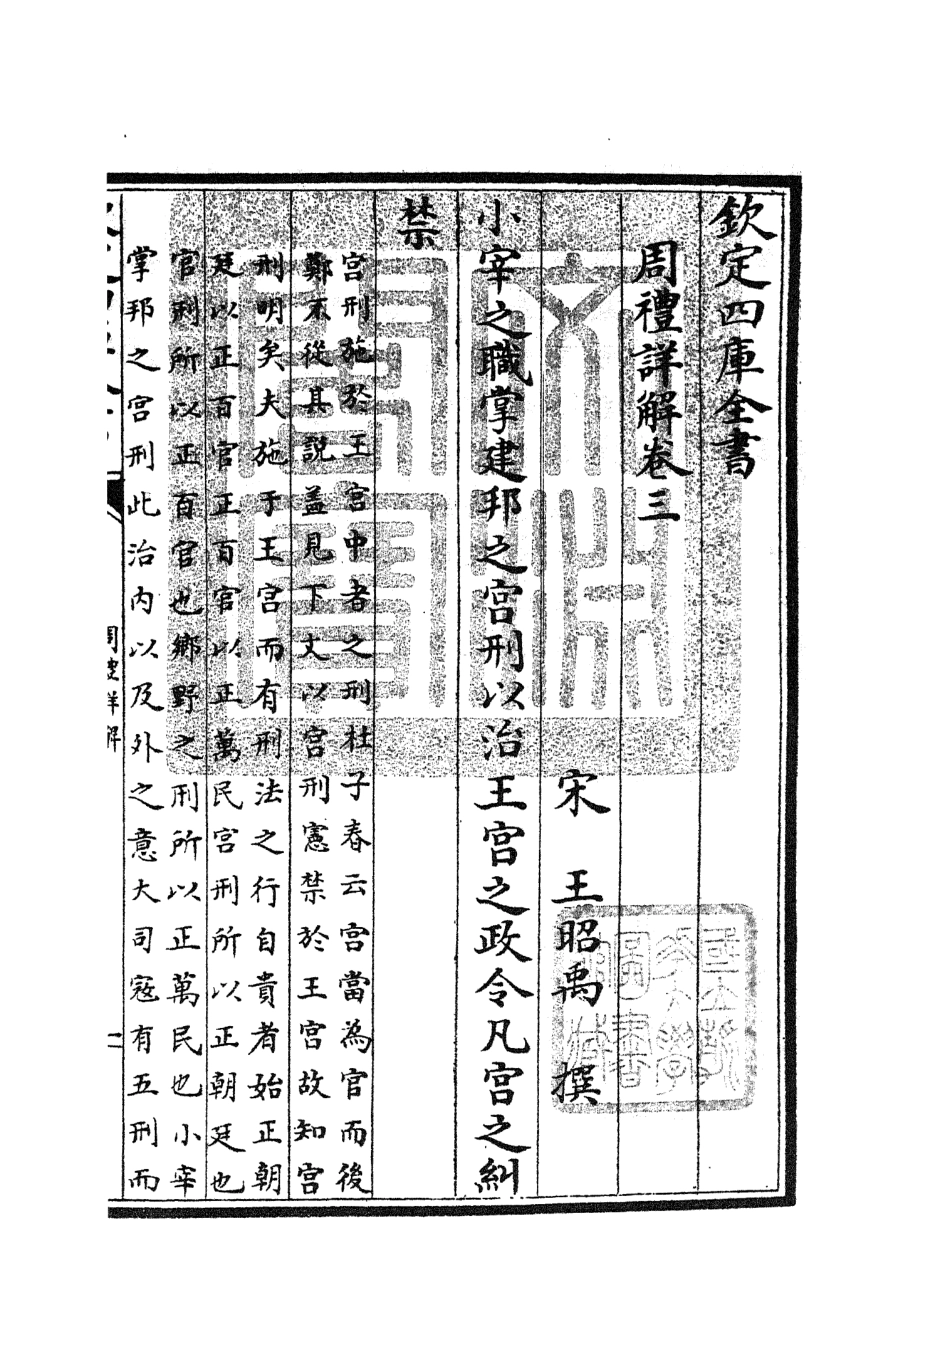 欽定四庫全書
周禮詳解卷三
宋 王昭禹 撰
小宰之職掌建邦之宫刑以治王宫之政令凡宫之糾
禁
宫刑施於王宫中者之刑杜子春云宫當為官而後
鄭不從其說盖見下文以宫刑憲禁於王宫故知宫
刑明矣夫施于王宫而有刑法之行自貴者始正朝
廷以正百官正百官以正萬民宫刑所以正朝廷也
官刑所以正百官也鄉野之刑所以正萬民也小宰
掌邦之宫刑此治内以及外之意大司寇有五刑而
周禮詳解